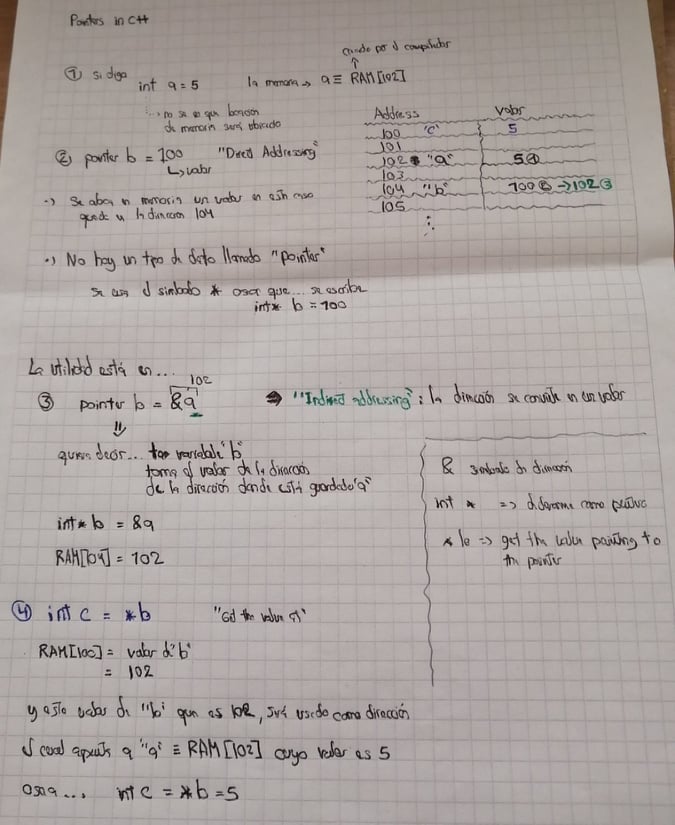 Pointers in C++
creado por el compilador
① si digo int a = 5 la memoria → a ≡ RAM[102]
no se en que locación
de memoria será ubicado
Address valor
100 "c" 5
101
102 "a" 5 ①
103
104 "b" 100 ② → 102 ③
105
② pointer b = 100 "Direct Addressing"
↳ valor
·) Se abre en memoria un valor en este caso
quede en la dirección 104
·) No hay un tipo de dato llamado "pointer"
se usa el simbolo * osea que... se escribe
int* b = 100
La utilidad está en...
102
③ pointer b = &a ⇒ "Indirect addressing": la dirección se convierte en un valor
⇓
quiere decir... variable "b"
toma el valor de la dirección
de la dirección donde está guardado "a"
int* b = &a
RAM[104] = 102
& simbolo de dirección
int * =>
* le => get the value pointing to
the pointer
④ int c = *b "Get the value of"
RAM[100] = valor de "b"
= 102
y este valor de "b" que es 102, será usado como dirección
el cual apunta a "a" ≡ RAM[102] cuyo valor es 5
osea... int c = *b = 5